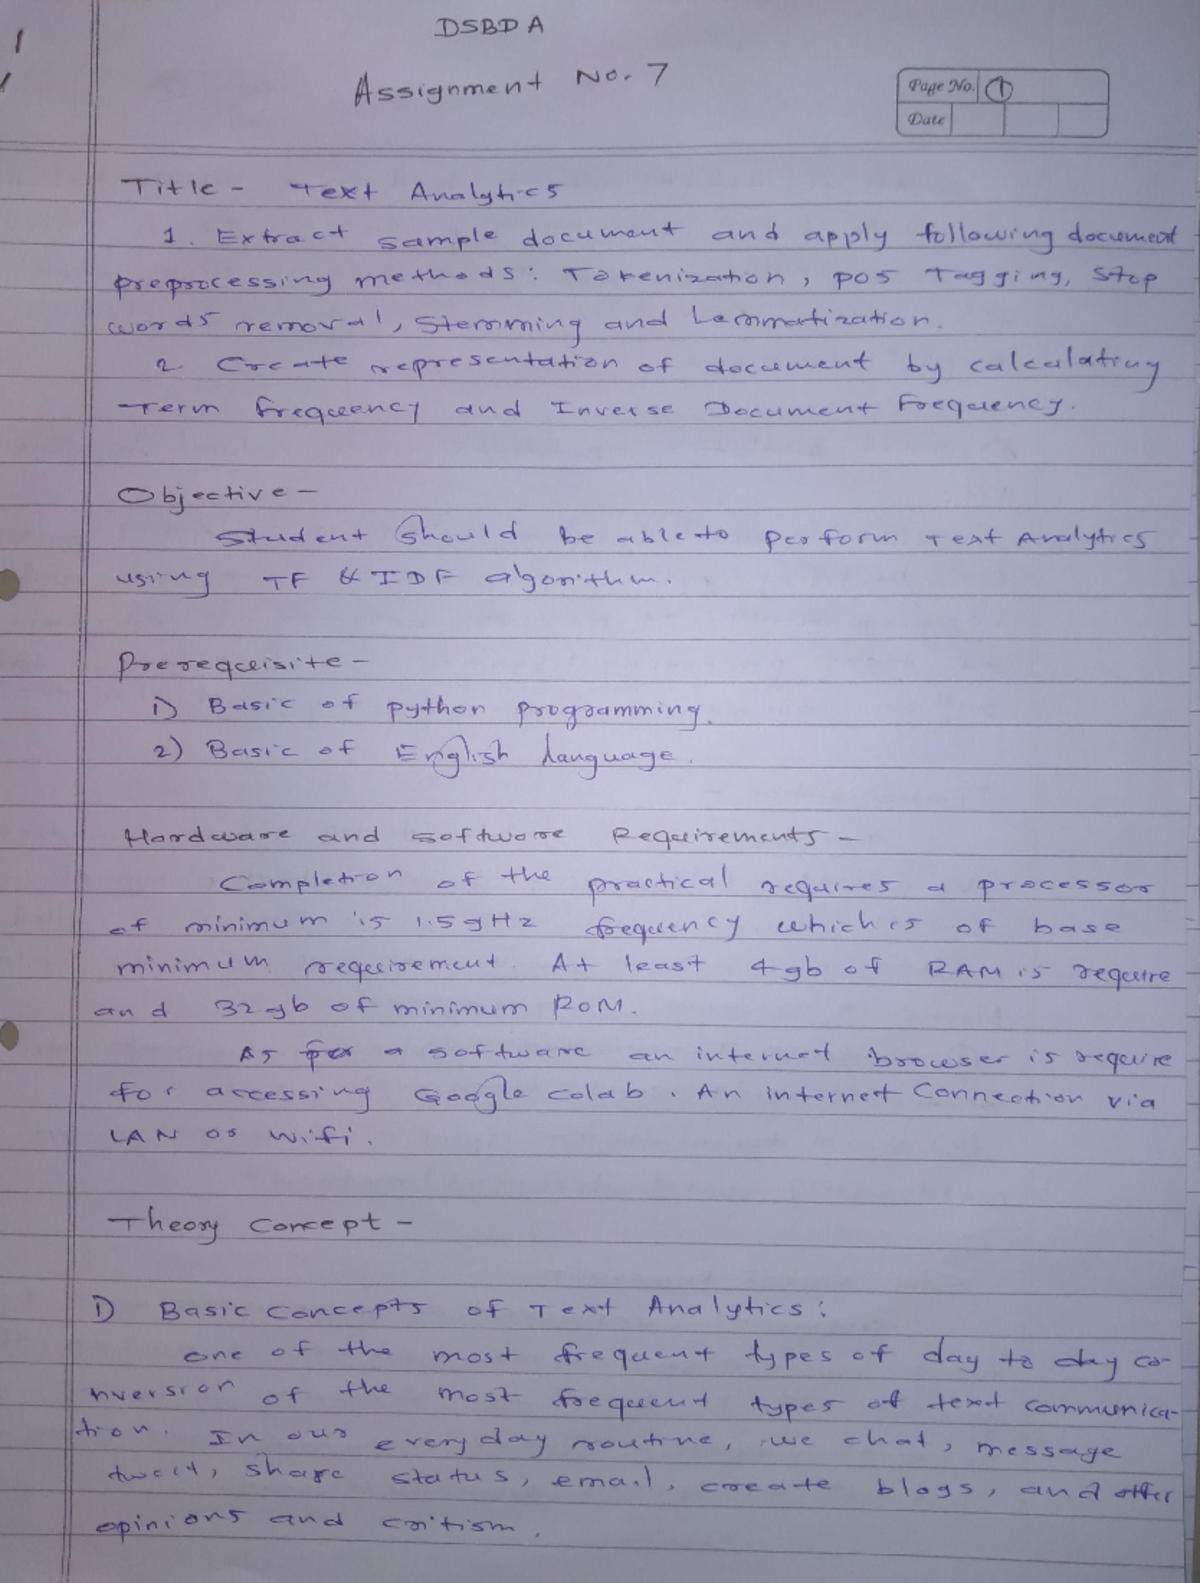 DSBDA
Assignment No. 7
Page No. 1
Date
Title - Text Analytics
1. Extract sample document and apply following document
preprocessing methods: Tokenization, POS Tagging, Stop
words removal, Stemming and Lemmatization.
2. Create representation of document by calculating
Term frequency and Inverse Document Frequency.
Objective -
Student should be able to perform Text Analytics
using TF & IDF algorithm.
Prerequisite -
1) Basic of python programming.
2) Basic of English language.
Hardware and software Requirements -
Completion of the practical requires a processor
of minimum is 1.5gHz frequency which is of base
minimum requirement. At least 4gb of RAM is require
and 32gb of minimum ROM.
As per a software an internet browser is require
for accessing Google colab. An internet Connection via
LAN or wifi.
Theory Concept -
1) Basic Concepts of Text Analytics:
one of the most frequent types of day to day co-
nversion of the most frequent types of text communica-
tion. In our everyday routine, we chat, message
tweet, share status, email, create blogs, and offer
opinions and critism.